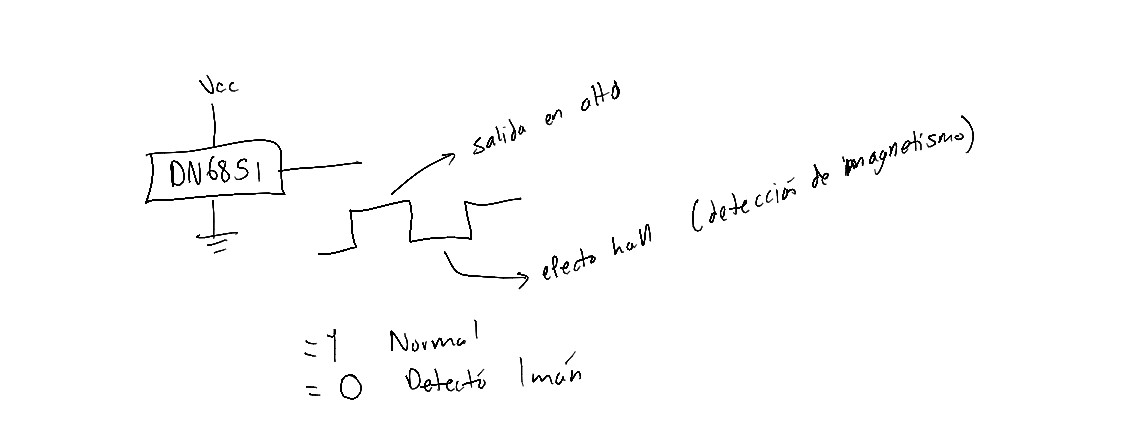 Vcc
DN6851
salida en alto
efecto hall (detección de magnetismo)
=1 Normal
=0 Detectó Imán